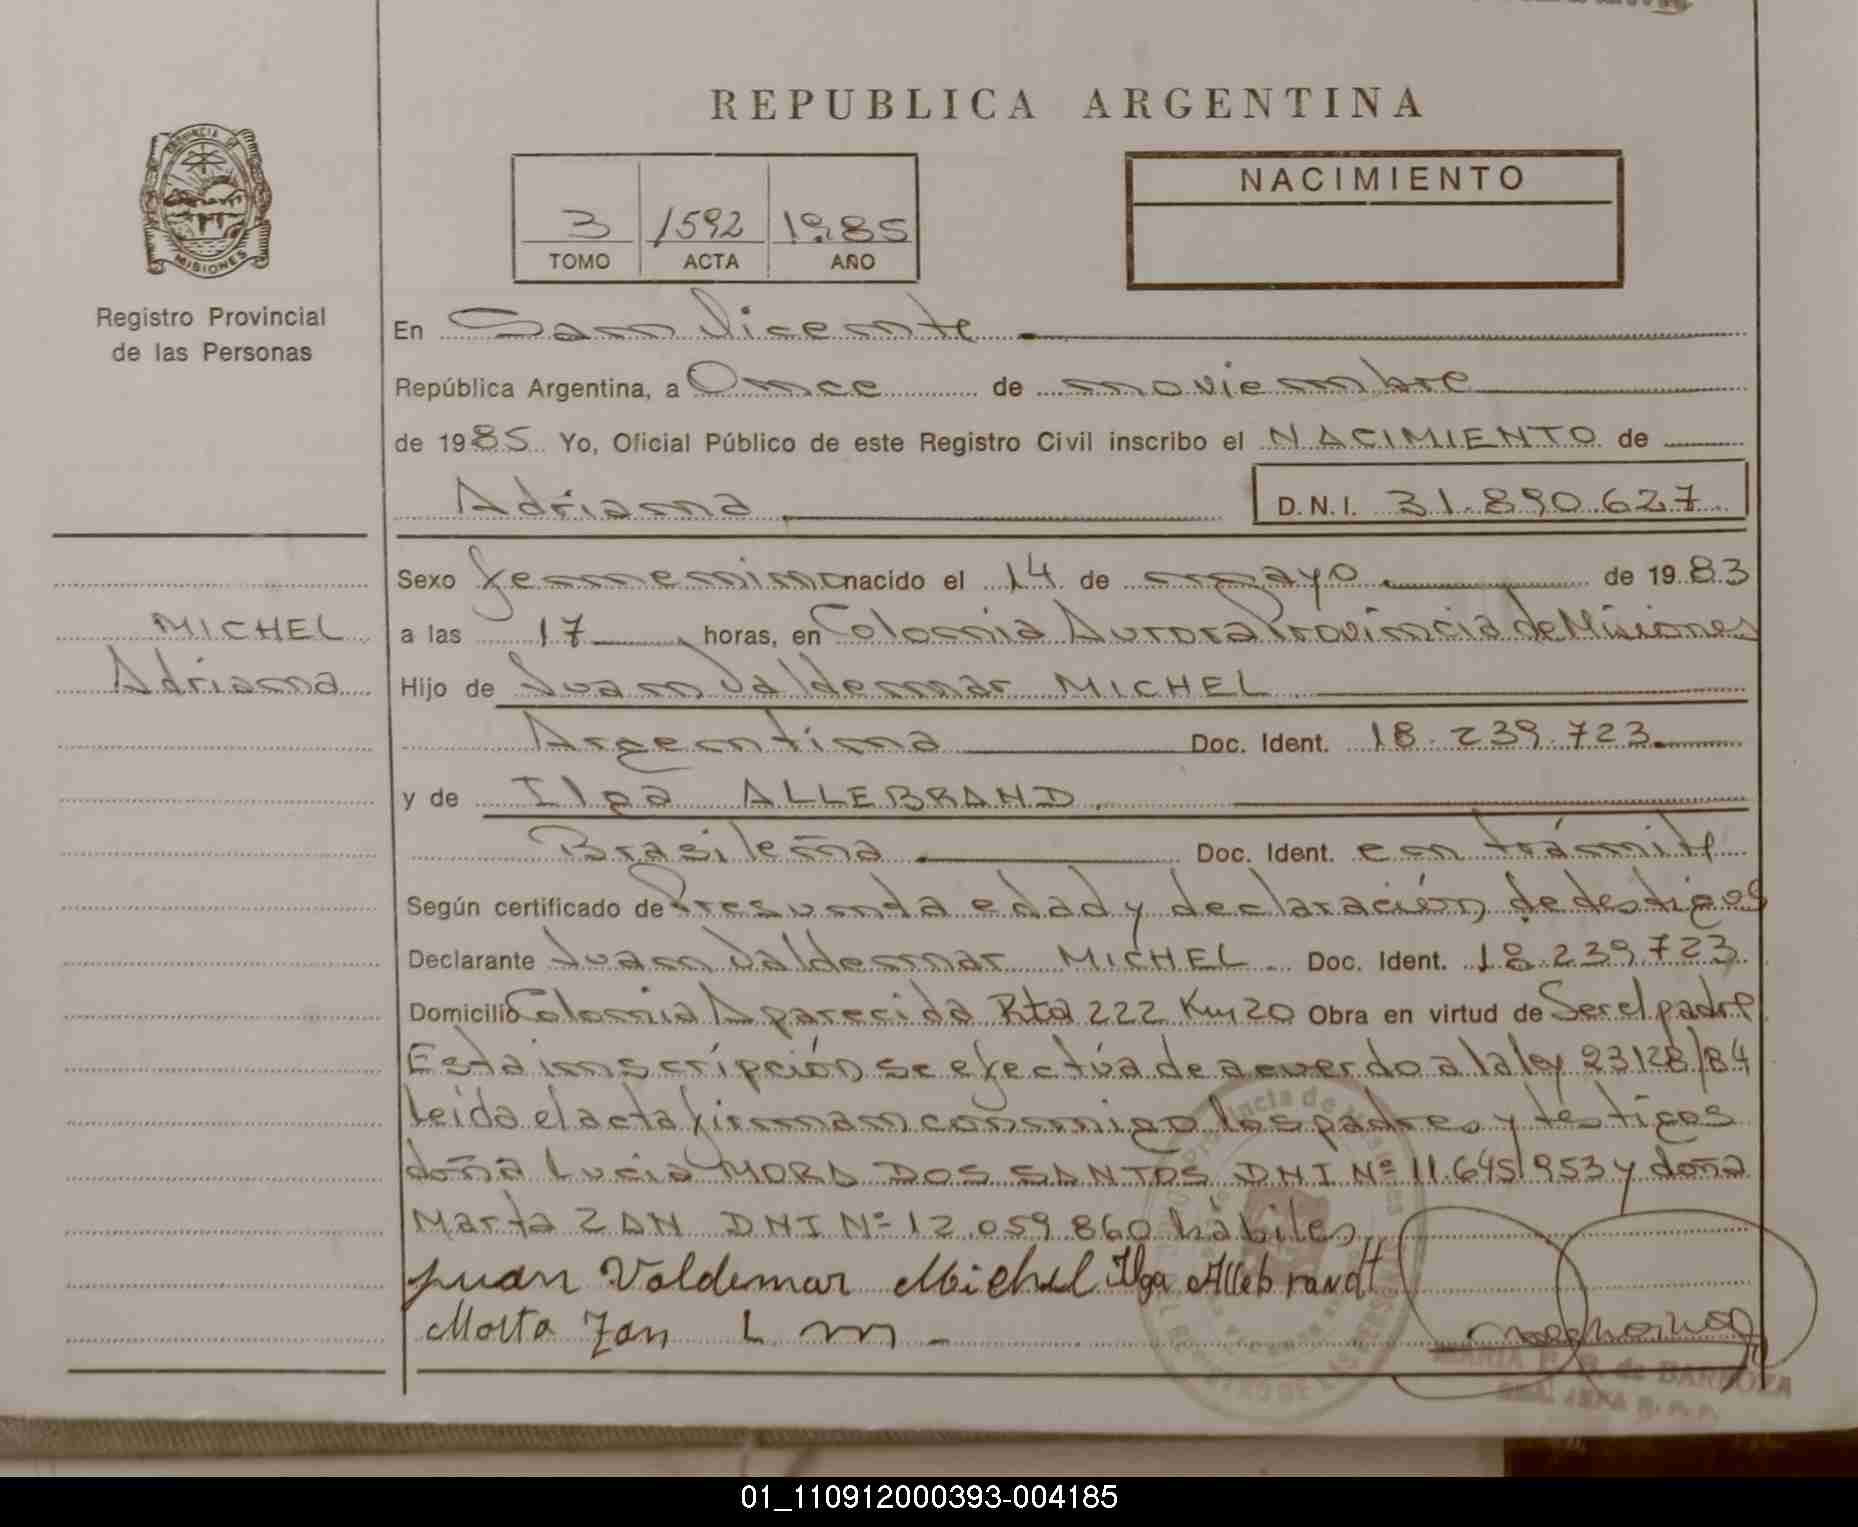 REPUBLICA ARGENTINA
PROVINCIA DE
MISIONES
Registro Provincial
de las Personas
3 1592 1985
TOMO ACTA AÑO
NACIMIENTO
En San Vicente
República Argentina, a Once de noviembre
de 1985 Yo, Oficial Público de este Registro Civil inscribo el NACIMIENTO de
Adriana D.N.I. 31.890.627
Sexo femenino nacido el 14 de mayo de 1983
MICHEL
Adriana
a las 17 horas, en Colonia Aurora Provincia de Misiones
Hijo de Juan Valdemar MICHEL
Argentina Doc. Ident. 18.239.723
y de Ilga ALLEBRAND
Brasileña Doc. Ident. en trámite
Según certificado de Presunta edad y declaración de testigos
Declarante Juan Valdemar MICHEL Doc. Ident. 18.239.723
Domicilio Colonia Aparecida Rta 222 Km 20 Obra en virtud de Ser el padre
Esta inscripción se efectúa de acuerdo a la ley 23128/84
Leída el acta firman conmigo los padres y téstigos
doña Lucia MORA DOS SANTOS DNI Nº 11.645.953 y doña
Marta ZAN DNI Nº 12.059.860 hábiles
Juan Valdemar Michel Ilga Allebrandt
Marta Zan L m
MARIA de BARBOZA
01_110912000393-004185